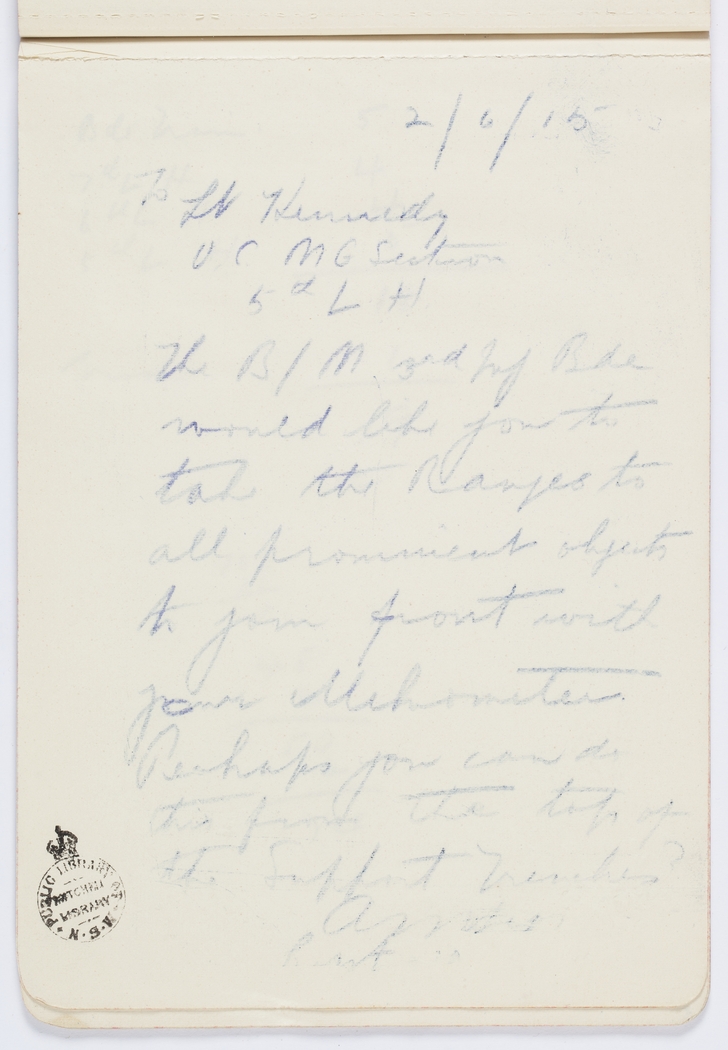 2/6/15
To Lt Kennedy
O C M G Section
5th L H
The B/M 3rd Inf Bde
would like you to
take the Ranges to
all prominent objects
to your front with
your Mekrometer.
Perhaps you can do
this from the top of
the Support Trenches?
PUBLIC LIBRARY OF N.S.W.
MITCHELL
LIBRARY